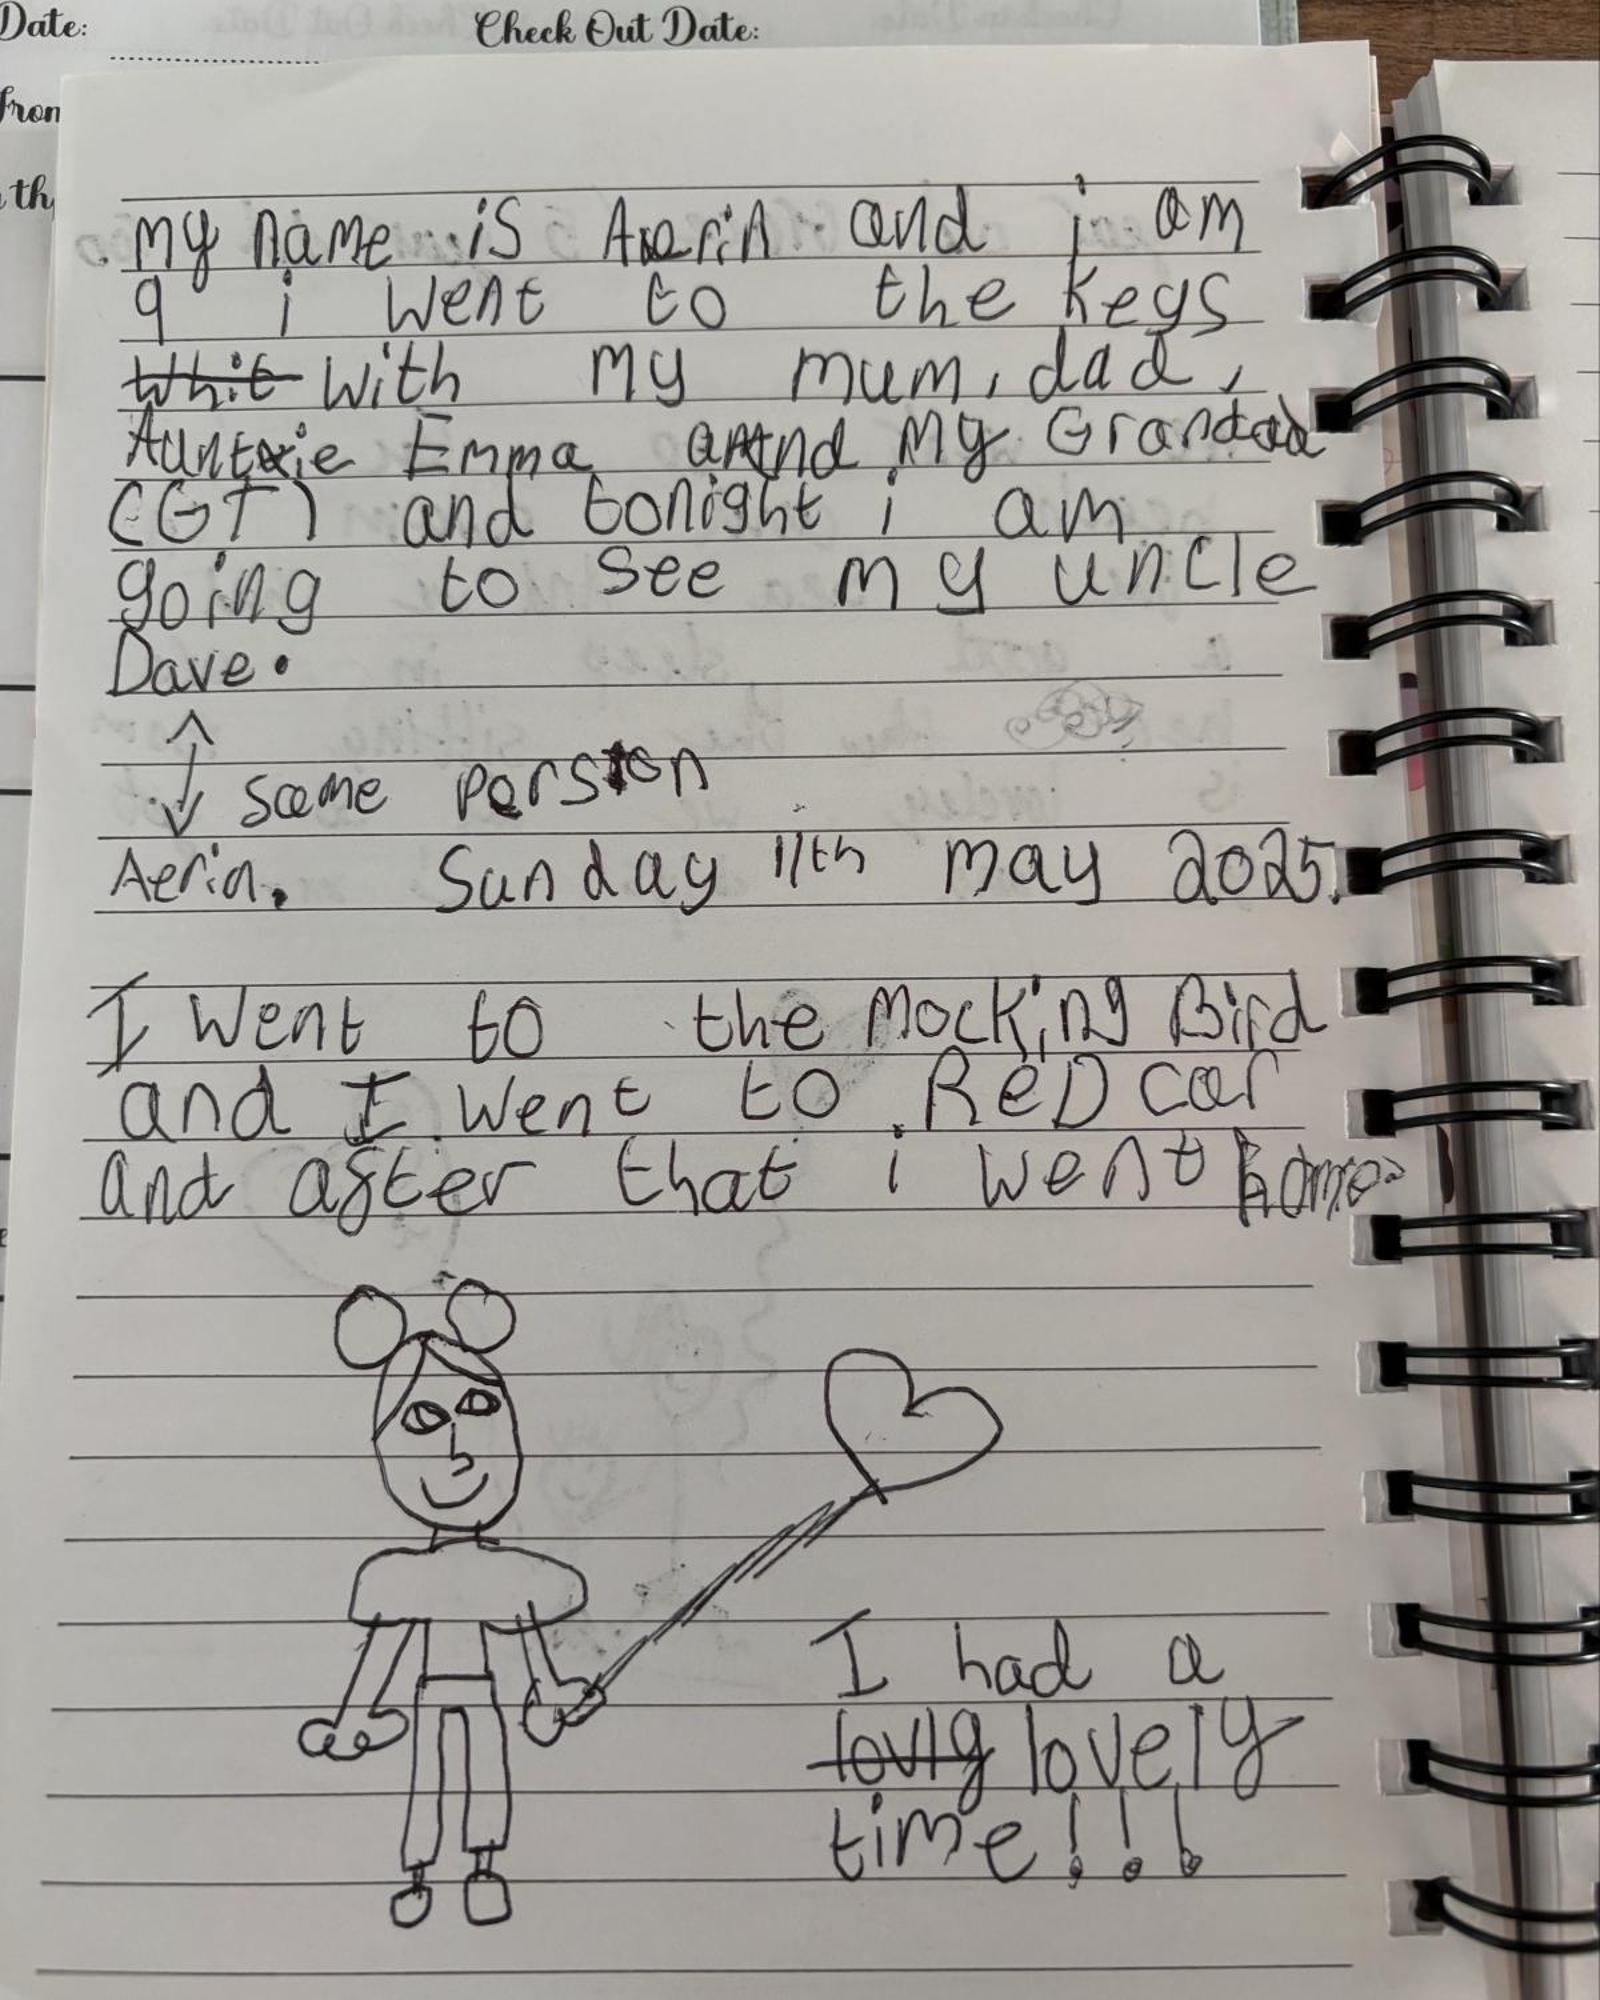 Date:
Check Out Date:
From
th
my name is Aerin and i am
9 i went to the Keys
Whit with my mum, dad,
Auntie Emma and My Grandad
(GT) and tonight i am
going to see my uncle
Dave.
same person
Aerin. Sunday 11th may 2025.
I went to the Mocking Bird
and I went to ReD car
and after that i went home.
I had a
lovly lovely
time!!!